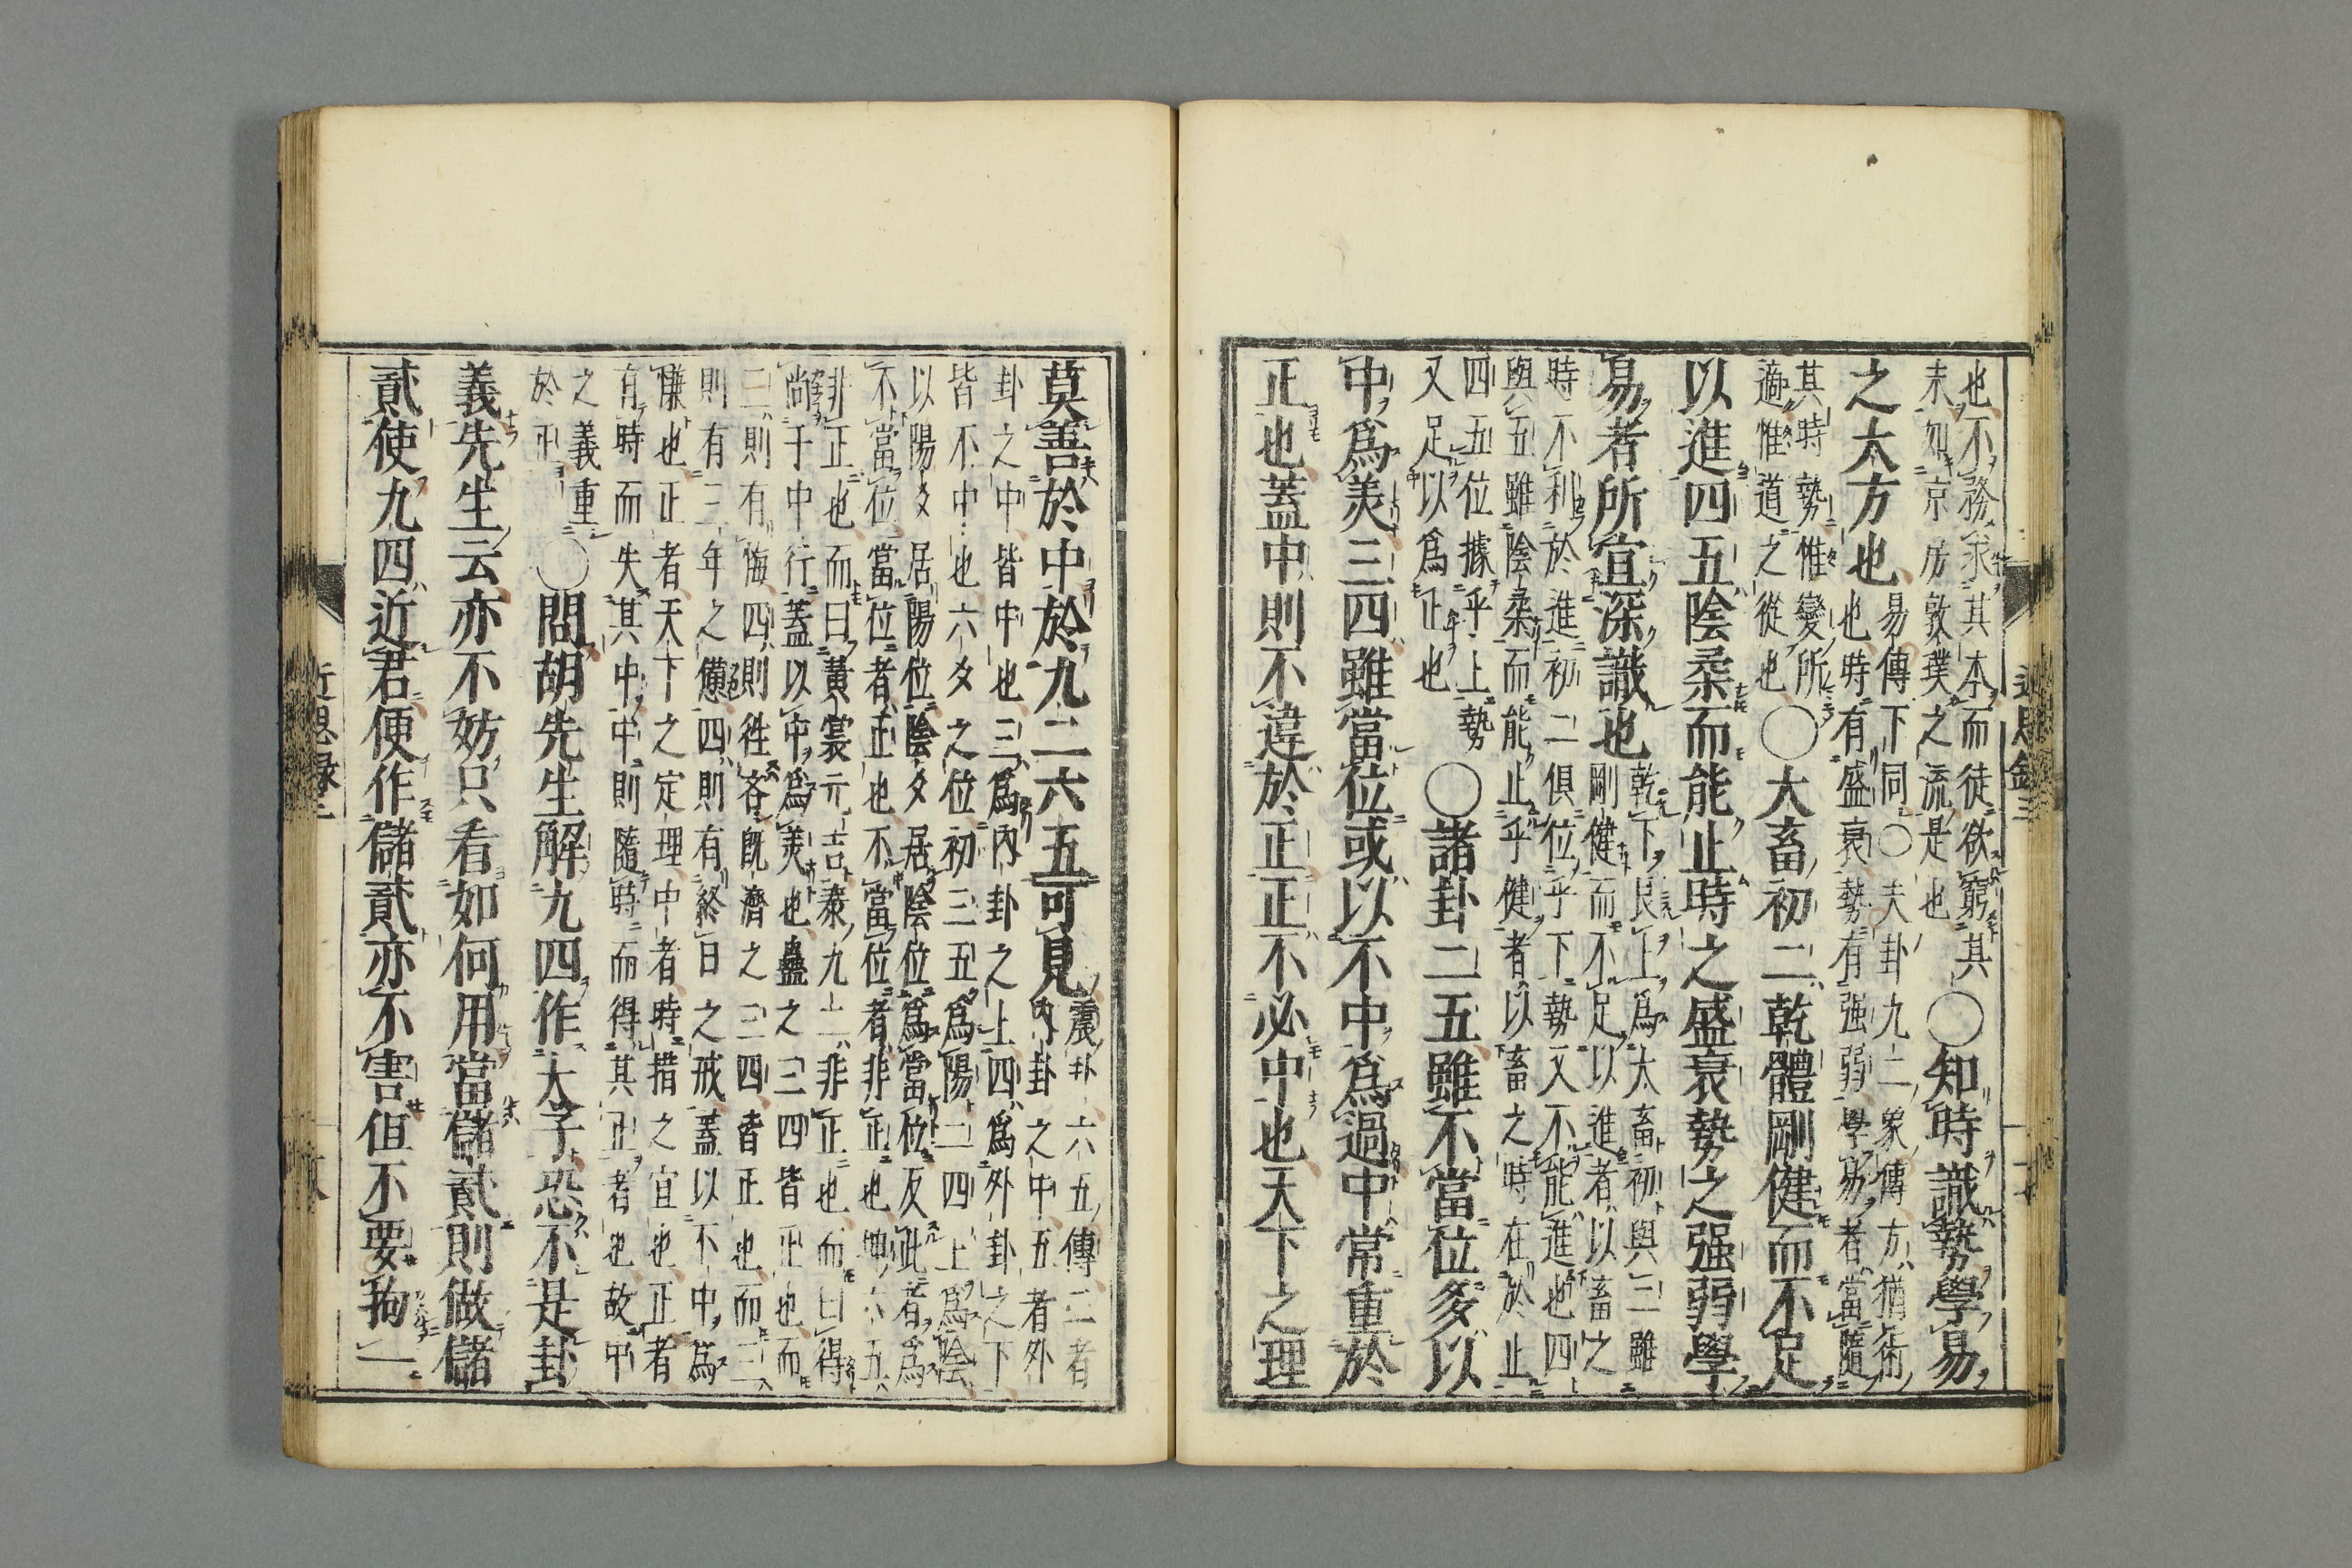 也不務求其本而徒欲窮其
末如京房郭璞之流是也
○知時識勢學易
之大方也
易傳下同○夬卦九二象傳方猶術
也時有盛衰勢有强弱學易者當隨
其時勢惟變所
適惟道之從也
○大畜初二乾體剛健而不足
以進四五陰柔而能止時之盛衰勢之强弱學
易者所宜深識也
乾下艮上爲大畜初與三雖
剛健而不足以進者以畜之
時不利於進初二俱位乎下勢又不能進也四
與五雖陰柔而能止乎健者以畜之時在於止
四五位據乎上勢
又足以爲正也
○諸卦二五雖不當位多以
中爲美三四雖當位或以不中爲過中常重於
正也蓋中則不違於正正不必中也天下之理
近思錄三
莫善於中於九二六五可見
震卦六五傳二者
內卦之中五者外
卦之中皆中也三爲內卦之上四爲外卦之下
皆不中也六爻之位初三五爲陽二四上爲陰
以陽爻居陽位陰爻居陰位爲當位反此者爲
不當位當位者正也不當位者非正也坤六五
非正也而曰黃裳元吉泰九二非正也而曰得
尚于中行蓋以中爲美也蠱之三四皆正也而
三則有悔四則往吝既濟之三四皆正也而三
則有三年之憊四則有終日之戒蓋以不中爲
慊也正者天下之定理中者時措之宜也正者
有時而失其中中則隨時而得其正者也故中
之義重
於正
○問胡先生解九四作太子恐不是卦
義先生云亦不妨只看如何用當儲貳則做儲
貳使九四近君便作儲貳亦不害但不要拘一
近思錄三